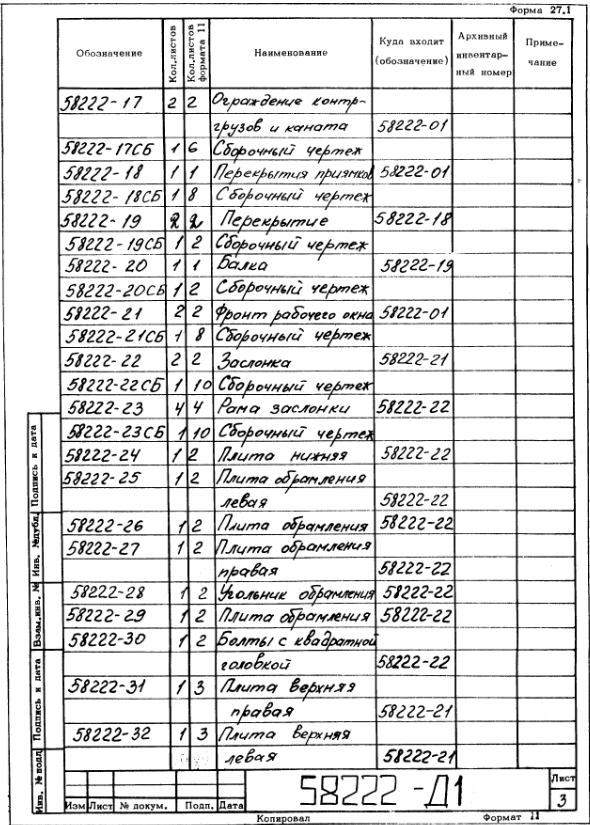 Форма 27.1
Обозначение Кол.листов Кол.листов формата 11 Наименование Куда входит (обозначение) Архивный инвентарный номер Примечание
58222-17 2 2 Ограждение контр-
грузов и каната 58222-01
58222-17СБ 1 6 Сборочный чертеж
58222-18 1 1 Перекрытия приямков 58222-01
58222-18СБ 1 8 Сборочный чертеж
58222-19 2 2 Перекрытие 58222-18
58222-19СБ 1 2 Сборочный чертеж
58222-20 1 1 Балка 58222-19
58222-20СБ 1 2 Сборочный чертеж
58222-21 2 2 Фронт рабочего окна 58222-01
58222-21СБ 1 8 Сборочный чертеж
58222-22 2 2 Заслонка 58222-21
58222-22СБ 1 10 Сборочный чертеж
58222-23 4 4 Рама заслонки 58222-22
58222-23СБ 1 10 Сборочный чертеж
58222-24 1 2 Плита нижняя 58222-22
58222-25 1 2 Плита обрамления
левая 58222-22
58222-26 1 2 Плита обрамления 58222-22
58222-27 1 2 Плита обрамления
правая 58222-22
58222-28 1 2 Угольник обрамления 58222-22
58222-29 1 2 Плита обрамления 58222-22
58222-30 1 2 Болты с квадратной
головкой 58222-22
58222-31 1 3 Плита верхняя
правая 58222-21
58222-32 1 3 Плита верхняя
левая 58222-21
Подпись и дата
Инв. №дубл.
Взам.инв. №
Подпись и дата
Инв. № подл
Изм Лист № докум. Подп. Дата
58222-Д1
Лист
3
Копировал Формат 11